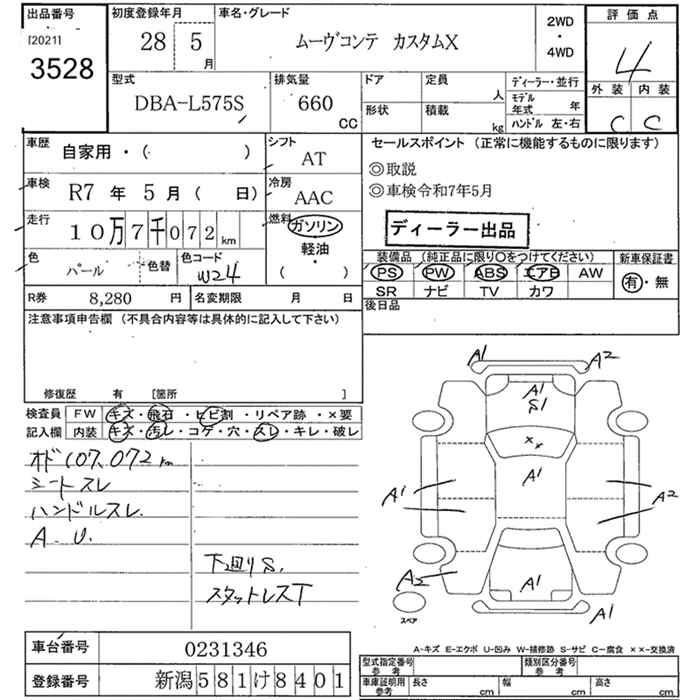 出品番号 初度登録年月 車名・グレード 2WD ・ 4WD 評価点
[2021] 3528 28 5月 ムーヴコンテ カスタムX 4
型式 排気量 ドア 定員 人 ディーラー・並行 外装 内装
DBA-L575S 660 CC 形状 積載 kg モデル年式 年 ハンドル 左・右 C C
車歴 自家用・( ) シフト AT セールスポイント (正常に機能するものに限ります)
◎取説
車検 R7年 5月( 日) 冷房 AAC ◎車検令和7年5月
走行 10万7千072km 燃料 ガソリン 軽油・( ) ディーラー出品
色 パール 色替 色コード W24 装備品 (純正品に限り○をつけてください) 新車保証書
PS PW ABS エアB AW 有・無
R券 8,280 円 名変期限 月 日 SR ナビ TV カワ
注意事項申告欄 (不具合内容等は具体的に記入して下さい) 後日品
修復歴 有 [箇所 ]
検査員 FW キズ・飛石・ヒビ割・リペア跡・×要
記入欄 内装 キズ・汚レ・コゲ・穴・スレ・キレ・破レ
オド107,072km
シートスレ
ハンドルスレ
A. U.
下廻りS.
スタットレスT
A1 A2
A1
S1
××
A1 A1 A2
A2 A1 A1
スペア
A-キズ E-エクボ U-凹み W-補修跡 S-サビ C-腐食 ××-交換済
車台番号 0231346 型式指定番号 参考 類別区分番号 参考
登録番号 新潟581け8401 車庫証明用 参考 長さ cm 幅 cm 高さ cm